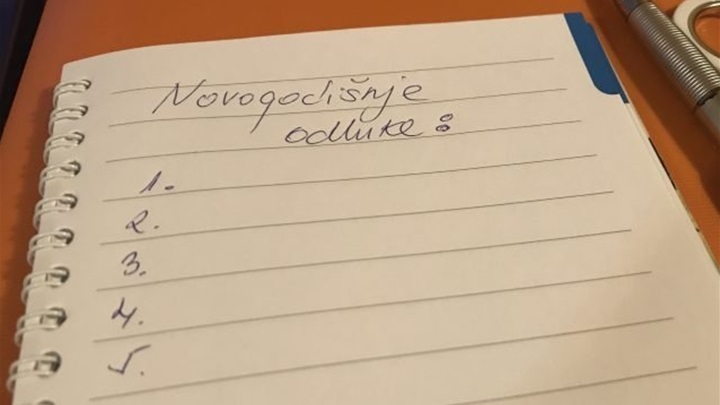 Novogodišnje
odluke:
1.
2.
3.
4.
5.